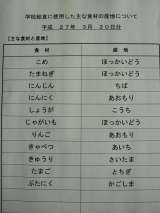 学校給食に使用した主な食材の産地について
平成 27年 3月 20日分
【主な食材と産地】
食材 産地
こめ ほっかいどう
たまねぎ ほっかいどう
にんじん ちば
にんにく あおもり
しょうが こうち
じゃがいも ほっかいどう
りんご あおもり
きゃべつ あいち
きゅうり さいたま
たまご とちぎ
ぶたにく かごしま